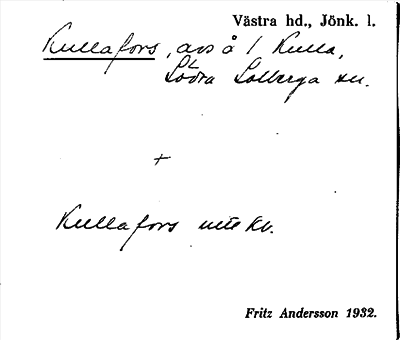 Västra hd., Jönk. l.
Kullafors, avs å / Kulla,
Södra Solberga sn.
+
Kullafors ute kv.
Fritz Andersson 1932.